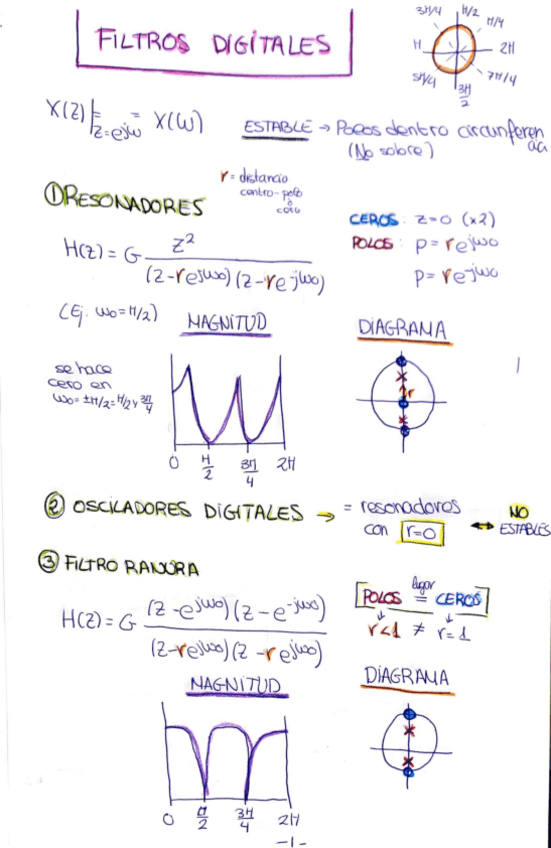 FILTROS DIGITALES
3π/4 π/2 π/4
π 2π
5π/4 3π/2 7π/4
X(z)|z=ejω = X(ω)
ESTABLE → Polos dentro circunferencia
(No sobre)
① RESONADORES
r = distancia
centro-polo
o
cero
H(z) = G z² / (z-rejω0)(z-re-jω0)
CEROS: z=0 (x2)
POLOS: p = rejω0
p = re-jω0
(Ej. ω0=π/2)
MAGNITUD
DIAGRAMA
se hace
cero en
ω0=±π/2=π/2 y 3π/4
r
0 π/2 3π/4 2π
② OSCILADORES DIGITALES → = resonadores
con r=0 ↔ NO ESTABLES
③ FILTRO RANURA
H(z) = G (z-ejω0)(z-e-jω0) / (z-rejω0)(z-rejω0)
POLOS lugar = CEROS
r<1 ≠ r=1
MAGNITUD
DIAGRAMA
0 π/2 3π/4 2π
-1-